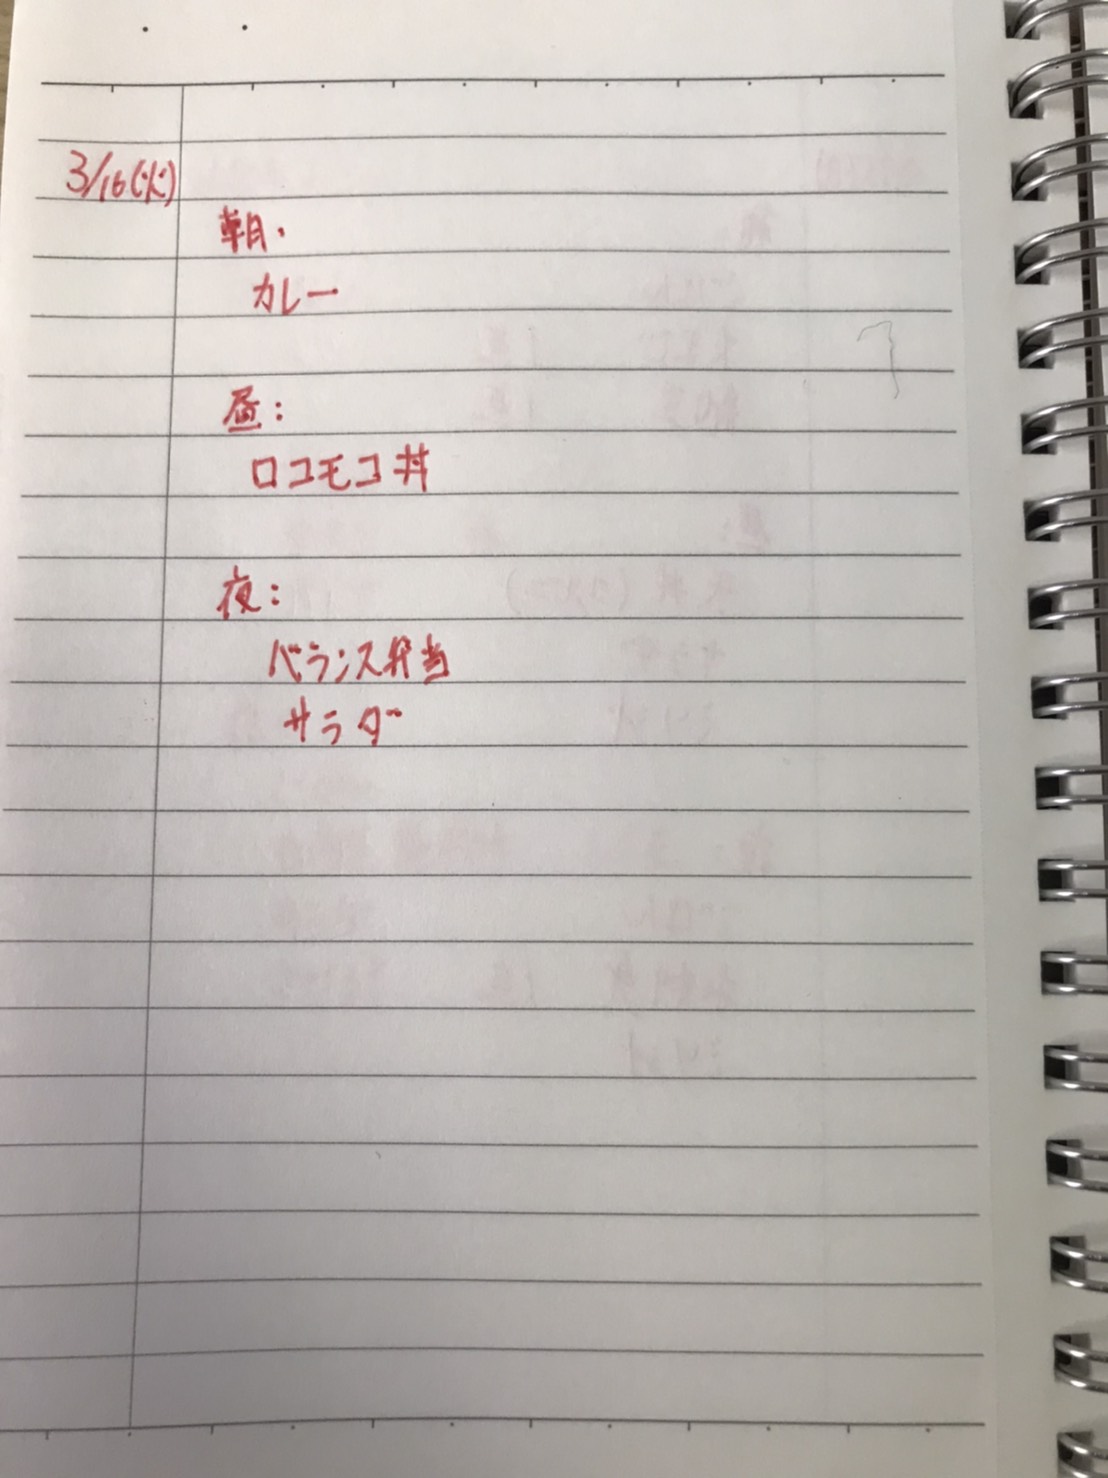 3/16(火)
朝.
カレー
昼:
ロコモコ丼
夜:
バランス弁当
サラダ